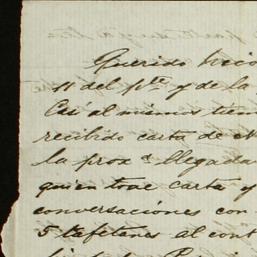 Querido
11 del pte y de la
Casi al mismo tiem
recibido carta de
la prox a llegada
quien tove carta y
conversaciones con
5 tafetanes al cont